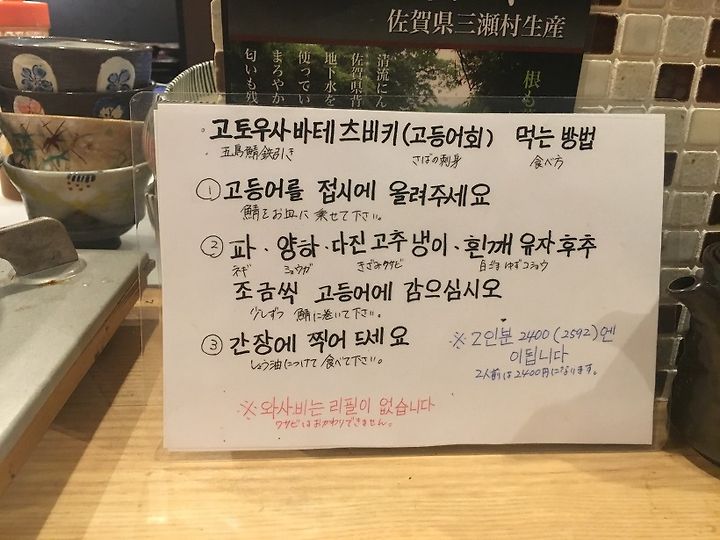 佐賀県三瀬村生産
根も
清流にん
佐賀県脊
地下水を
使ってい
まろやか
匂いも残
고토우사바테츠비키(고등어회) 먹는 방법
五島鯖鉄引き さばの刺身 食べ方
① 고등어를 접시에 올려주세요
鯖をお皿に乗せて下さい。
② 파・양하・다진고추냉이・흰깨 유자후추
ネギ ミョウガ きざみワサビ 白ごま ゆずコショウ
조금씩 고등어에 감으십시오
少しずつ 鯖に巻いて下さい。
③ 간장에 찍어 드세요
しょう油につけて食べて下さい。
※2인분 2400(2592)엔
이됩니다
2人前は2400円になります。
※와사비는 리필이 없습니다
ワサビはおかわりできません。